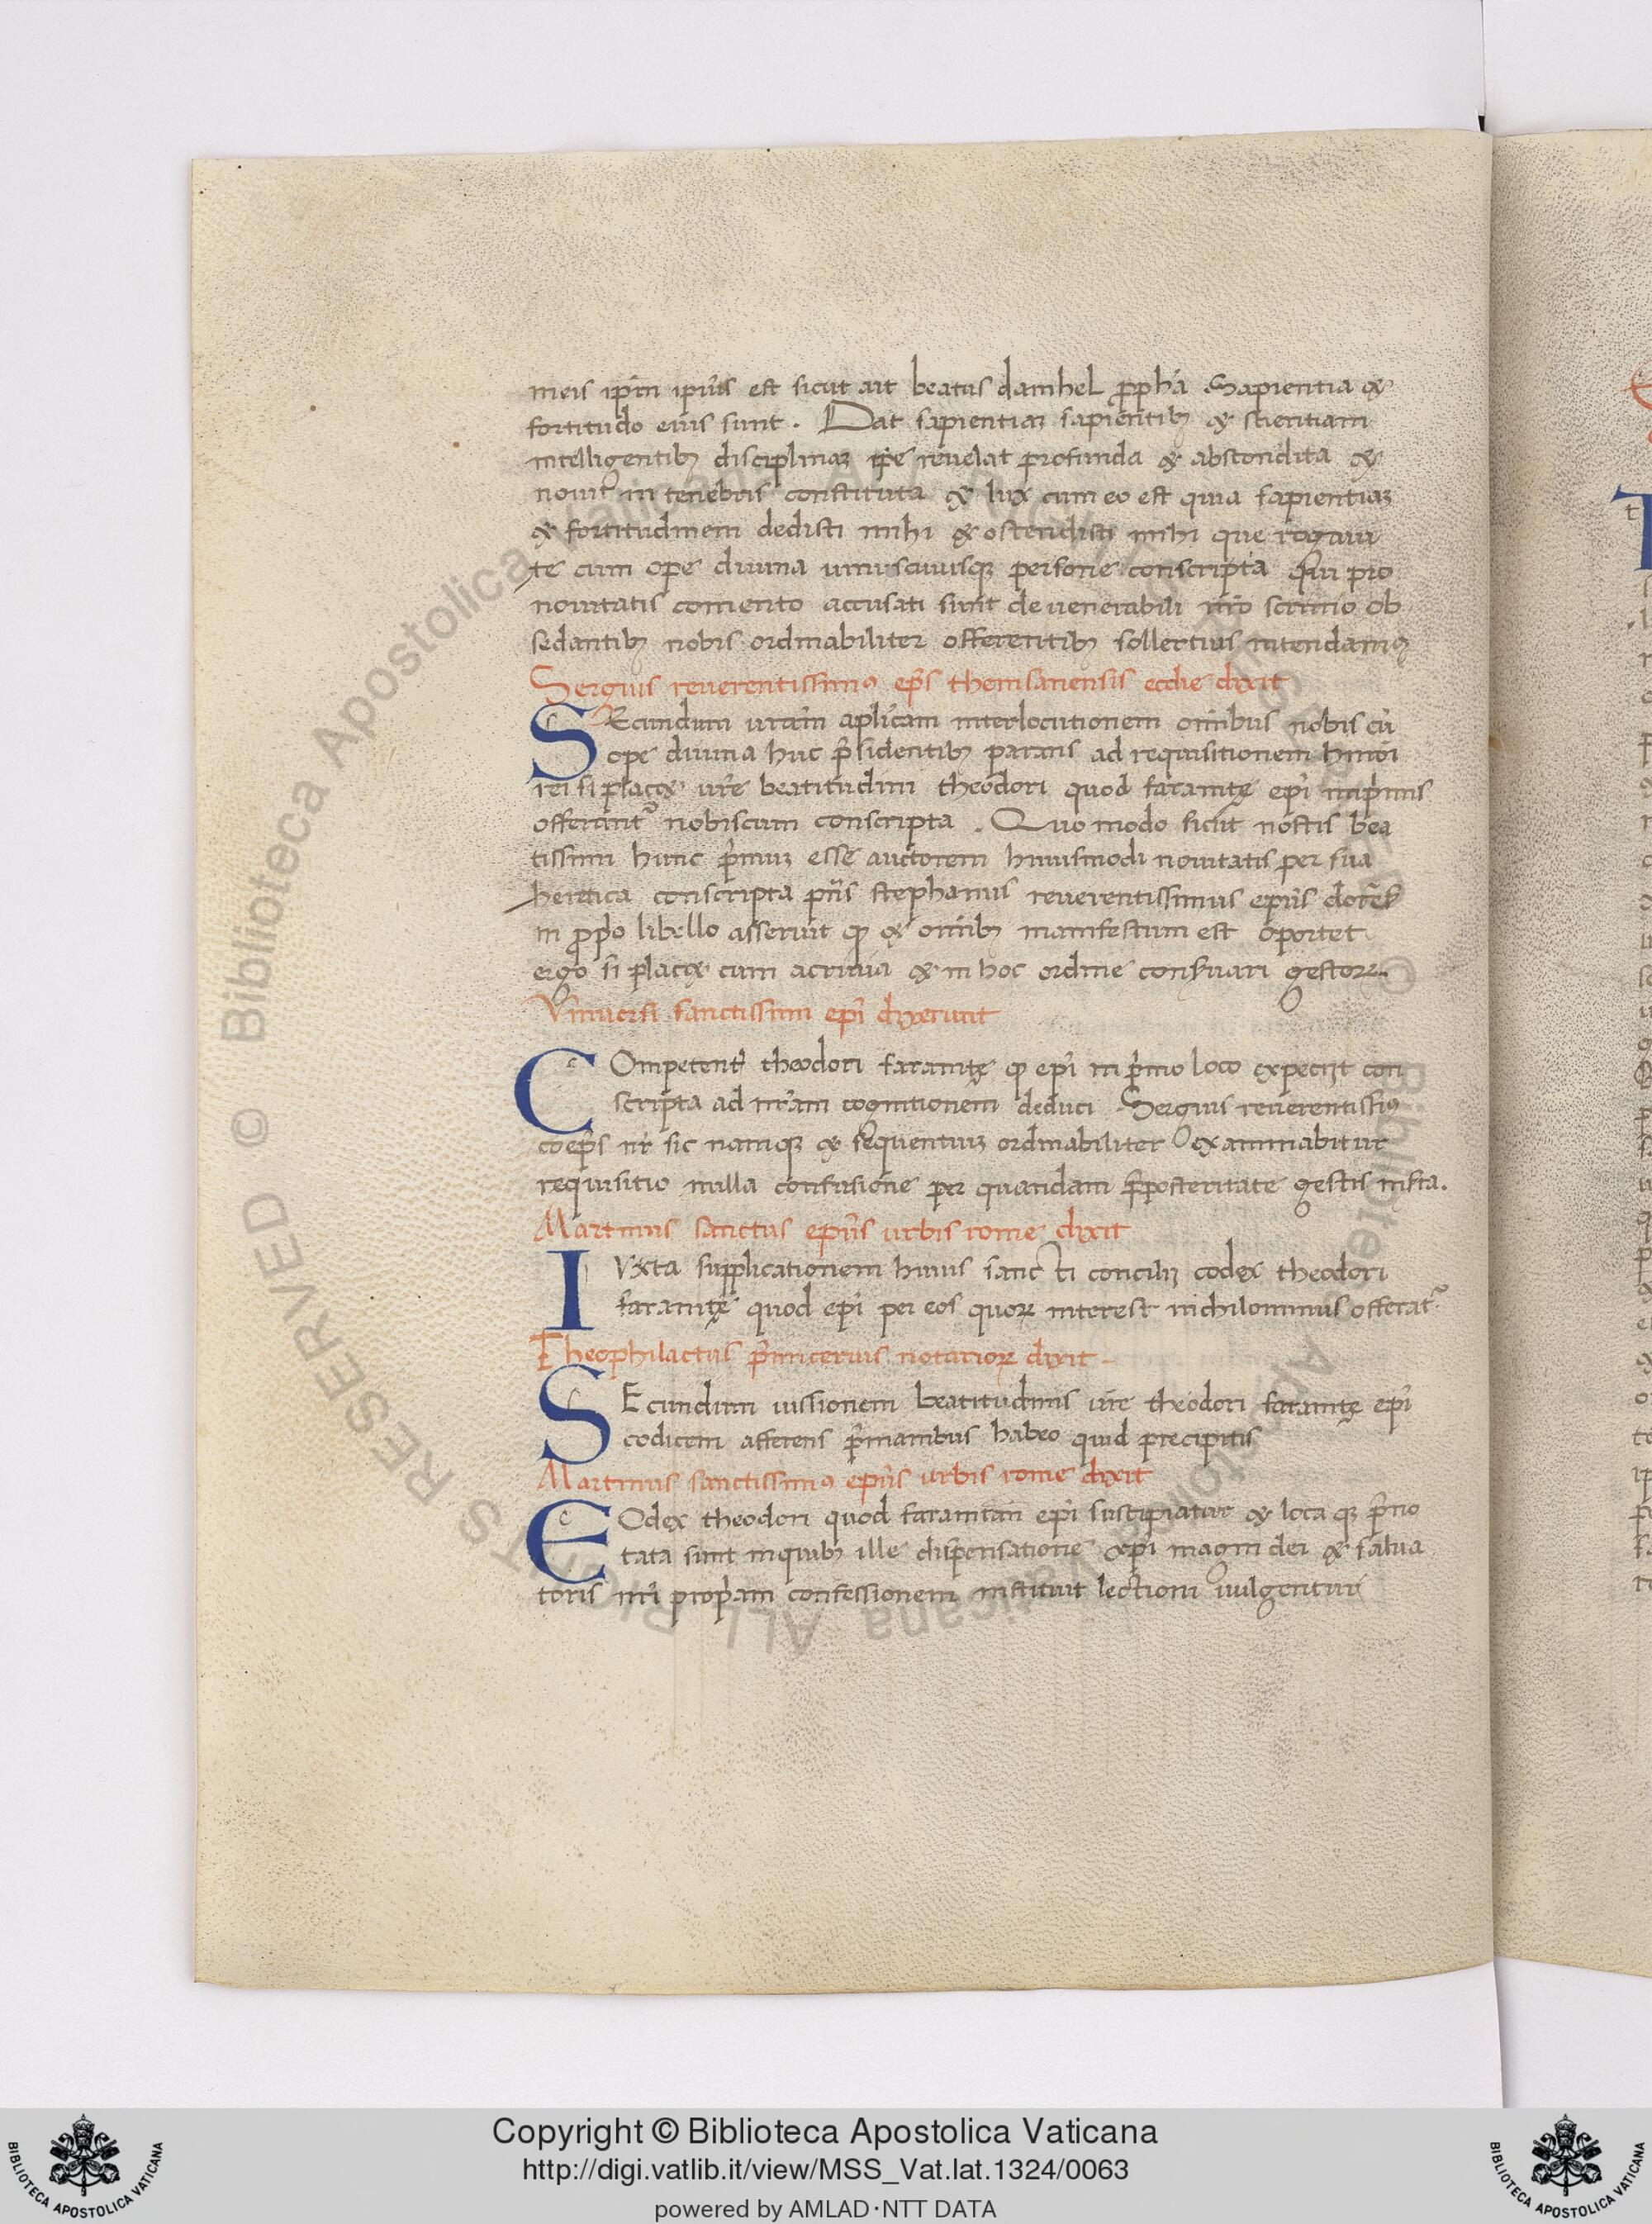 meis ip̄m ip̄ius est sicut ait beatus danihel p̱pha Sapientia &
fortitudo eius sunt. Dat sapientiaꝫ sapientibꝫ & scientiam
intelligentibꝫ disciplinaꝫ ip̄e reuelat profunda & abscondita &
nouit in tenebris constituta & lux cum eo est quia sapientiaꝫ
& fortitudinem dedisti mihi & ostendisti mihi que rogaui
te cum ope diuina uniuscuiusqꝫ persone conscripta qui pro
nouitatis comento accusati sunt de uenerabili nr̄o scrinio ob
sedantibꝫ nobis ordinabiliter offerentibꝫ sollertius intendamꝰ
Sergius reuerentissimꝰ ep̄s themisanensis ecclīe dixit
SEcundum ur̄am apl̄icam interlocutionem om̄ibus nobis cū
ope diuina huc p̄sidentibꝫ paratis ad requisitionem hm̄oi
rei si plac& ur̄e beatitudini theodori quod faranitę ep̄i inp̄mis
offerunt᷑ nobiscum conscripta. Quo modo sicut nostis bea
tissimi hunc p̄muꝫ esse auctorem huiusmodi nouitatis per sua
heretica conscripta p̄ns stephanus reuerentissimus ep̄us dorēs
in prop̄o libello asseruit qd & om̄ibꝫ manifestum est oportet
ergo si plac& cum acriuia & in hoc ordine consuari gestoꝝ.
Vniuersi sanctissimi ep̄i dixerunt
COmpetent᷑ theodori faranitę qd ep̄i in p̄mo loco expeciit con
scripta ad nr̄am cognitionem deduci Sergius reuerentissiꝰ
coep̄s nr̄ sic namqꝫ & sequentiuꝫ ordinabiliter examinabitur
requisitio nulla confusione per quandam p̄posteritate gestis insta.
Martinus sanctus ep̄us urbis rome dixit
IVxta supplicationem huius sanc ti concilii codex theodori
faranitę quod ep̄i per eos quoꝝ interest nichilominus offerat᷑.
Theophilactus p̄micerius notarioꝝ dixit
SEcundum iussionem beatitudinis ur̄e theodori faranitę ep̄i
codicem afferens p̄manibus habeo quid precipitis
Martinus sanctissimꝰ ep̄us urbis rome dixit
EOdex theodori quod faranitan ep̄i suscipiatur & loca qꝫ p̄no
tata sunt inquibꝫ ille dispensatione xp̄i magni dei & salua
toris nr̄i prop̄am confessionem instituit lectioni iuulgentur
Copyright © Biblioteca Apostolica Vaticana
http://digi.vatlib.it/view/MSS_Vat.lat.1324/0063
powered by AMLAD·NTT DATA